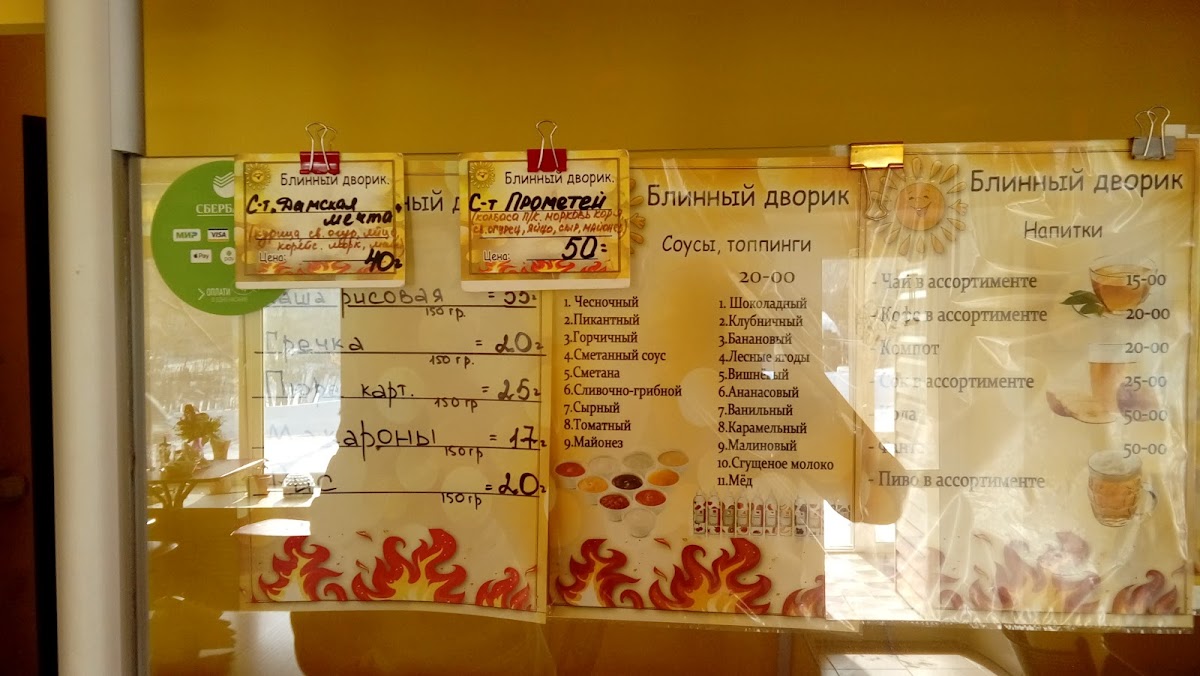 СБЕРБ
МИР VISA
Pay
ОПЛАТИ
Блинный дворик.
С-т. Дамская
мечта.
Цена: 40=
Блинный дворик.
С-т Прометей
(колбаса п/к, морковь кор-я
св. огурец, яйцо, сыр, майонез)
Цена: 50=
рисовая = 35=
150 гр.
Гречка = 20=
150 гр.
карт. = 25=
150 гр
ароны = 17=
150 гр
= 20=
150 гр
Блинный дворик
Соусы, топпинги
20-00
1. Чесночный
2.Пикантный
3.Горчичный
4.Сметанный соус
5.Сметана
6.Сливочно-грибной
7.Сырный
8.Томатный
9.Майонез
1. Шоколадный
2.Клубничный
3.Банановый
4.Лесные ягоды
5.Вишневый
6.Ананасовый
7.Ванильный
8.Карамельный
9.Малиновый
10.Сгущеное молоко
11.Мёд
Блинный дворик
Напитки
- Чай в ассортименте 15-00
- Кофе в ассортименте 20-00
- Компот 20-00
- Сок в ассортименте 25-00
50-00
50-00
- Пиво в ассортименте